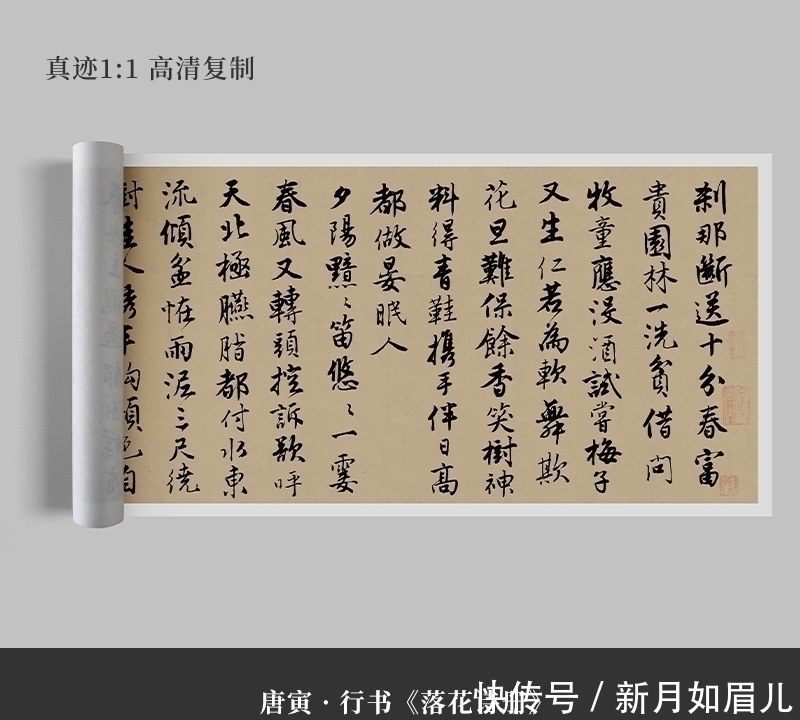 真迹1:1 高清复制
刹那断送十分春富
貴園林一洗貧借问
牧童應没酒試嘗梅子
又生仁若為軟舞欺
花旦難保餘香笑樹神
料得青鞋携手伴日高
都做晏眠人
夕陽黯〻笛悠〻一霎
春風又轉頭控訴欲呼
天北極臙脂都付水東
流傾盆怪雨泥三尺繞
唐寅·行书《落花诗册》
快传号 / 新月如眉儿